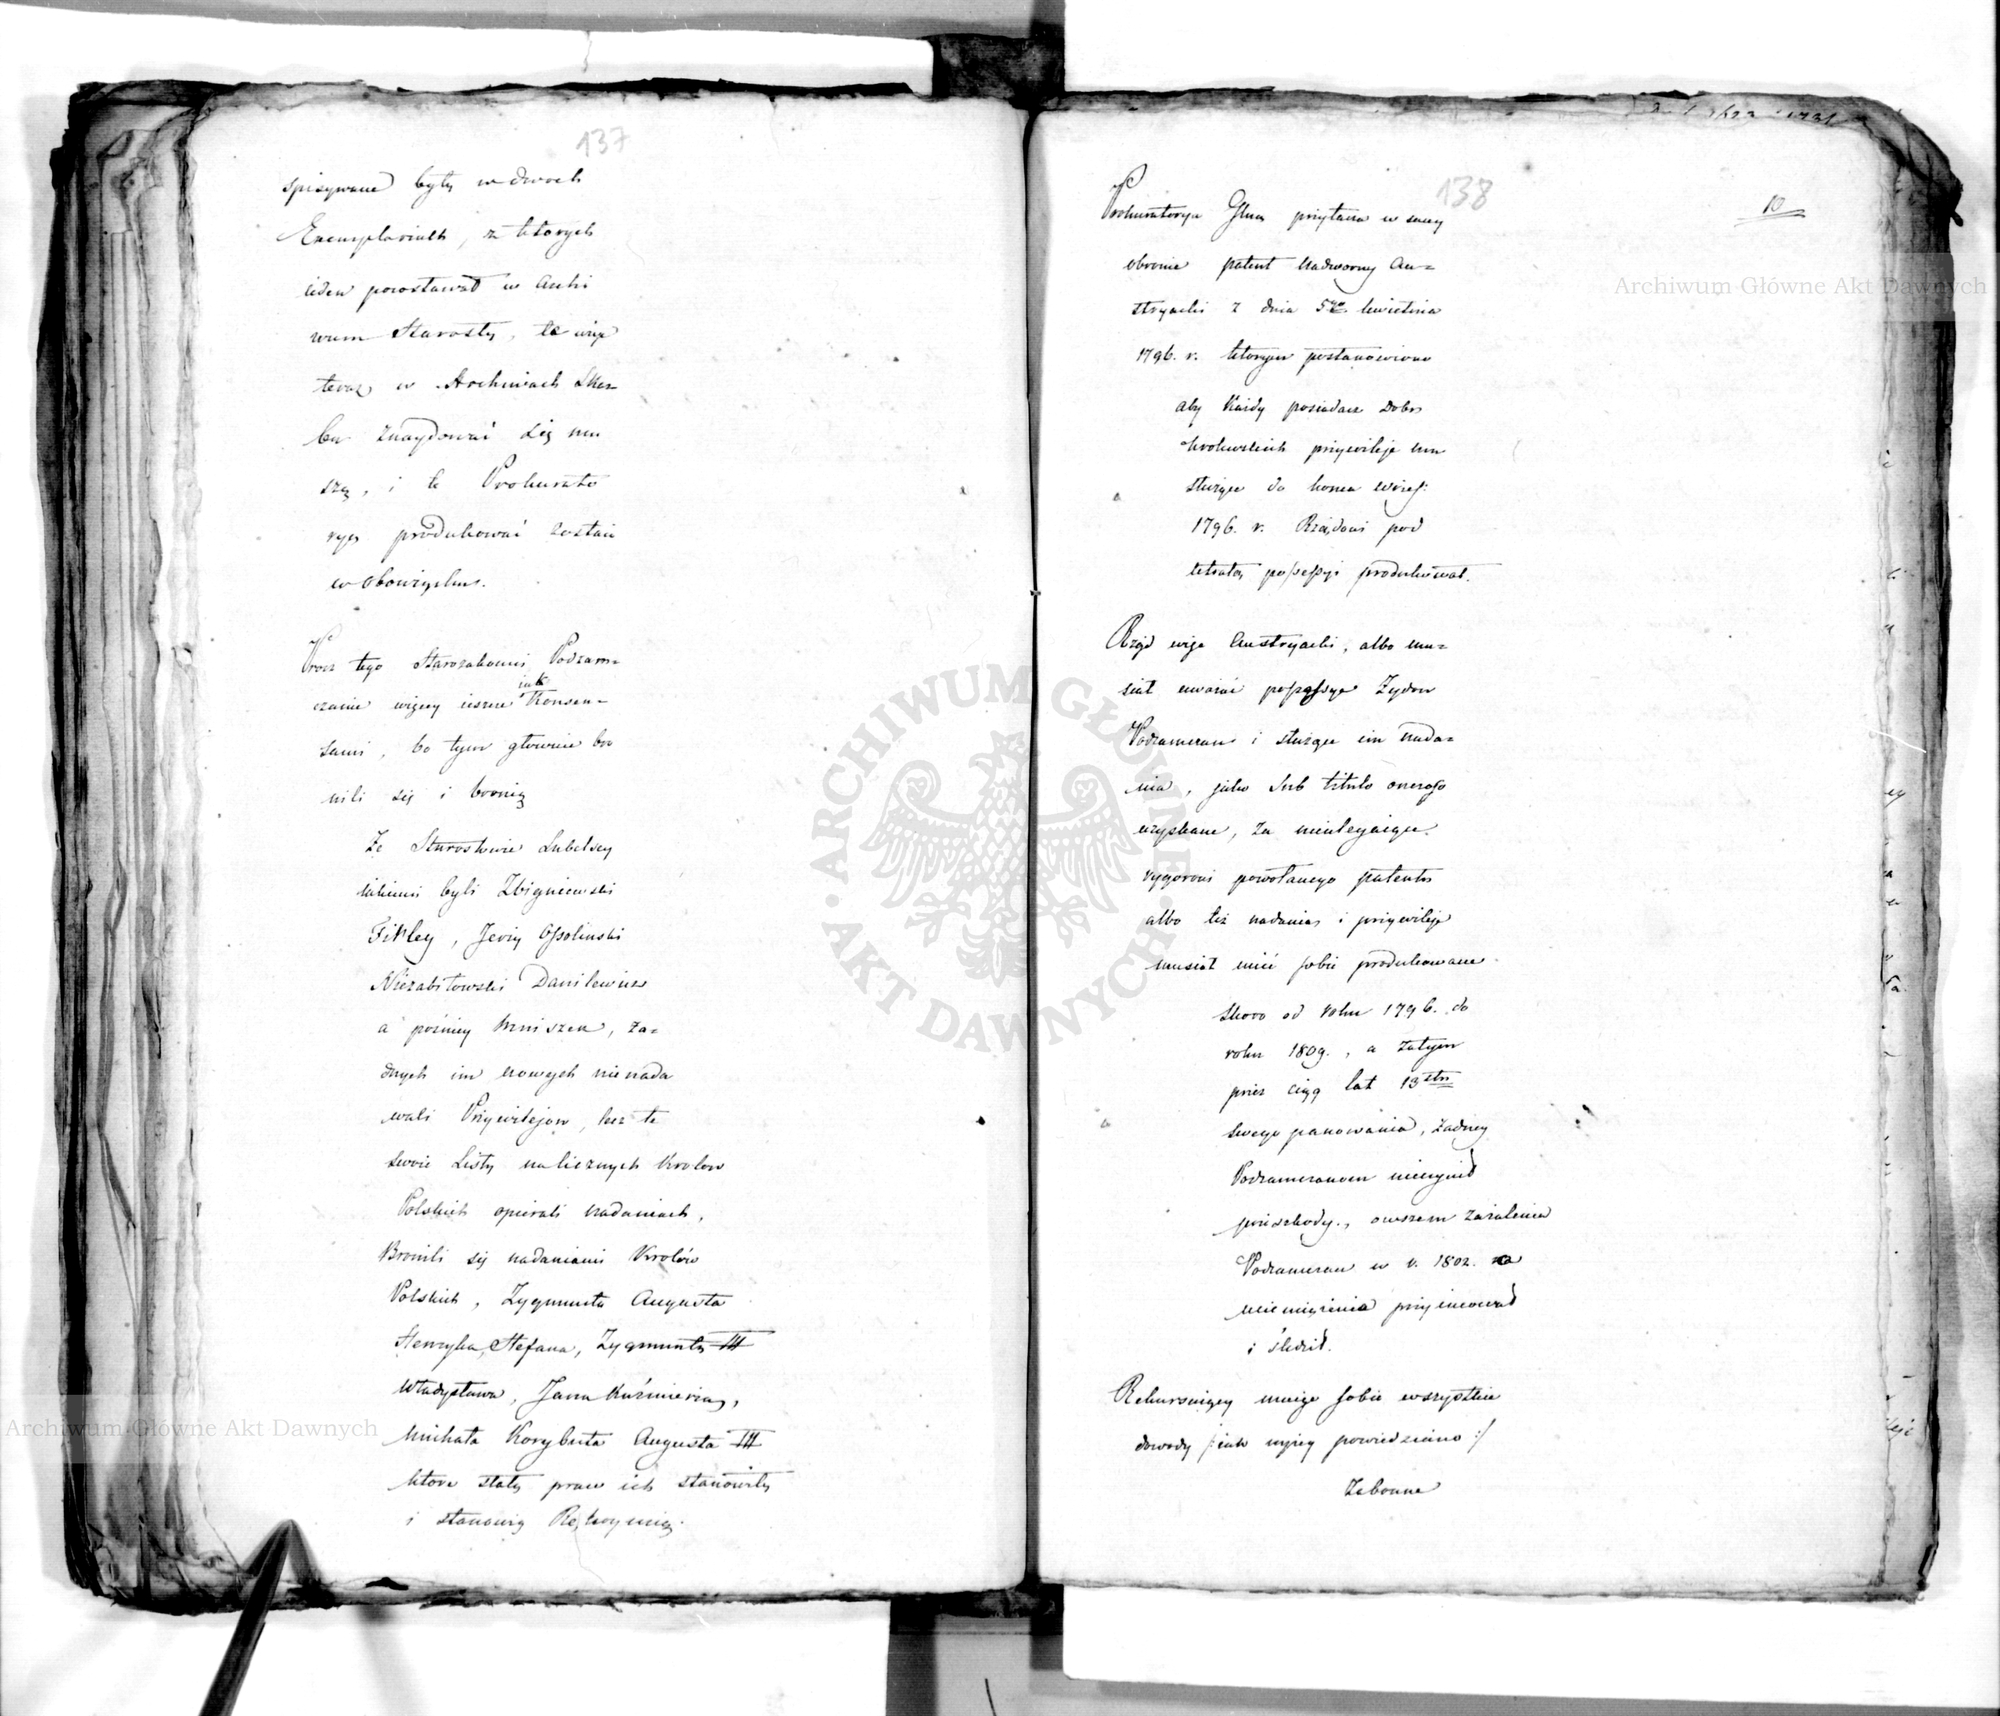 137
spisywane były w dwoch
Exemplariach, z ktorych
ieden pozostawał w Archi
wum Starosty, te więc
teraz w Archiwach Skar-
bu znaydować się mu
szą, i te Prokurato
rya produkować zostaie
w obowiązku.
Procz tego Starozakonni Podzam-
czanie więcey ieszcze iak Konsen-
sami, bo tym głownie bro
nili się i bronią
Ze Starostowie Lubelscy
iakiemi byli Zbigniewski
Firley, Jerzy Ossolinski
Niezabitowski Danilewicz
a poźniey Mniszek, ża-
dnych im nowych nie nada
wali Przywilejow, lecz te
swoie Listy na licznych Krolow
Polskich opierali nadaniach,
Bronili się nadaniami Krolów
Polskich, Zygmunta Augusta
Henryka, Stefana, Zygmunta III
Władysława, Jana Kaźmierza,
Michała Korybuta Augusta III
ktore stałą praw ich stanowiły
i stanowią Rękoymią.
138
10
Prokuratorya Glna przytacza w swey
obronie patent Nadworny Au-
stryacki z dnia 5go kwietnia
1796. r. ktorym postanowiono
aby Każdy posiadacz Dobr
Krolewskich przywileje mu
służące do konca
1796. r. Rządowi pod
utratą possessyi produkował.
Rząd więc Austryacki, albo mu-
siał uważać possessye Zydow
Podzamczan i służące im nada-
nia, jako Sub titulo oneroso
uzyskane, za nieulegaiące
rygorowi powołanego patentu
albo też nadania i przywileje
musiał mieć sobie produkowane
skoro od roku 1796. do
roku 1809., a zatym
przez ciąg lat 13stu
swego panowania, żadney
Podzamczanom nieczynił
przeszkody, owszem zażalenia
Podzamczan w r. 1802. za
uciemiężenia przyimował
i śledził.
Rekursuiący maiąc sobie wszystkie
dowody /: iak wyżey powiedziano :/
Zabrane
Archiwum Główne Akt Dawnych
Archiwum Główne Akt Dawnych
ARCHIWUM GŁÓWNE AKT DAWNYCH